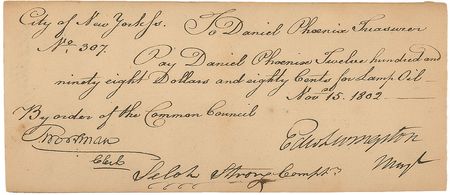 City of New York ss. To Daniel Phoenix Treasurer
No. 307.
Pay Daniel Phoenix Twelve hundred and
ninety eight Dollars and eighty Cents for Lamp Oil
Novr. 15. 1802
By order of the Common Council
T Wortman
Clerk
Edw Livingston
Mayr
Selah Strong Comptr.